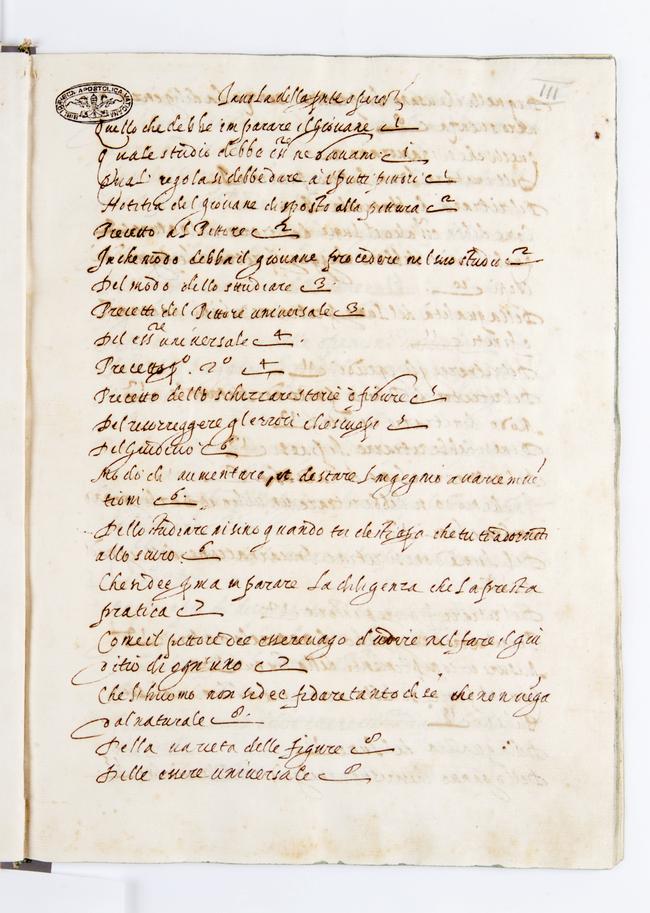 BIBLIOTECA APOSTOLICA VATICANA
III
Tavola della pnte opera
Quello che debbe imparare il Giovane c 1
Quale studio debbe essre ne giovani c 1
Qual regola si debbe dare a i putti pittori c 1
Notitia del giovane disposto alla pittura c 2
Precetto al Pittore c. 2
In che modo debba il giovane procedere nel suo studio c 2
Del modo dello studiare c 3.
Precetti del Pittore universale c 3.
Del essre universale c 4.
Precetto po. 2o c 4
Precetto dello schizzare storie o figure c 5
Del ricorreggere gl errori che
Del Giuditio c 6
Modo di aumentare, et destare l'ingegnio a varie inven
tioni c 6.
Dello studiare insino quando tu desti, o che tu t'adormēti
allo scuro. c 6
Che si dee pma imparare la diligenza che la presta
pratica c 7
Come il pittore dee essere vago d'udire nel fare il giu
ditio di ogn'uno c 7
Che l'huomo non si dee fidare tanto di se, che non vega
dal naturale c 8.
Della varieta delle figure c 8
Delle essere universale c 8